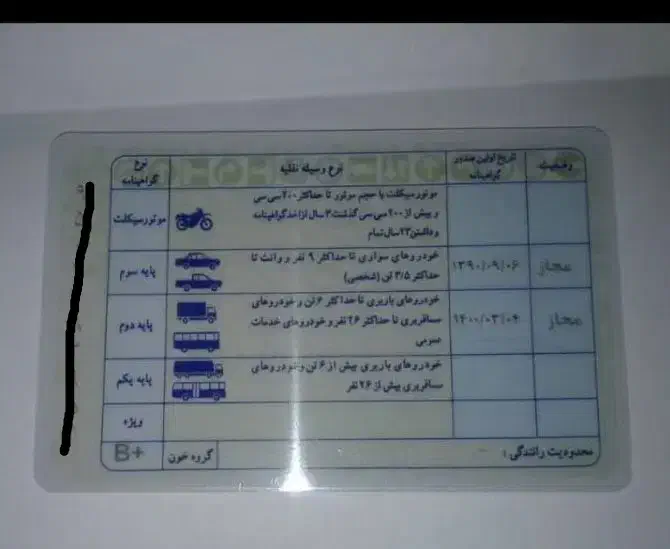 نوع گواهینامه
نوع وسیله نقلیه
تاریخ اولین صدور گواهینامه
وضعیت
موتورسیکلت
موتورسیکلت با حجم موتور تا حداکثر ۲۰۰ سی سی
و بیش از ۲۰۰ سی سی گذشت ۲ سال از اخذ گواهینامه
و داشتن ۲۳ سال تمام
پایه سوم
خودروهای سواری تا حداکثر ۹ نفر و وانت تا
حداکثر ۳/۵ تن (شخصی)
۱۳۹۰/۰۹/۰۶
مجاز
پایه دوم
خودروهای باربری تا حداکثر ۶ تن و خودروهای
مسافربری تا حداکثر ۲۶ نفر و خودروهای خدمات
عمومی
۱۴۰۰/۰۳/۰۴
مجاز
پایه یکم
خودروهای باربری بیش از ۶ تن و خودروهای
مسافربری بیش از ۲۶ نفر
ویژه
B+
گروه خون
محدودیت رانندگی :